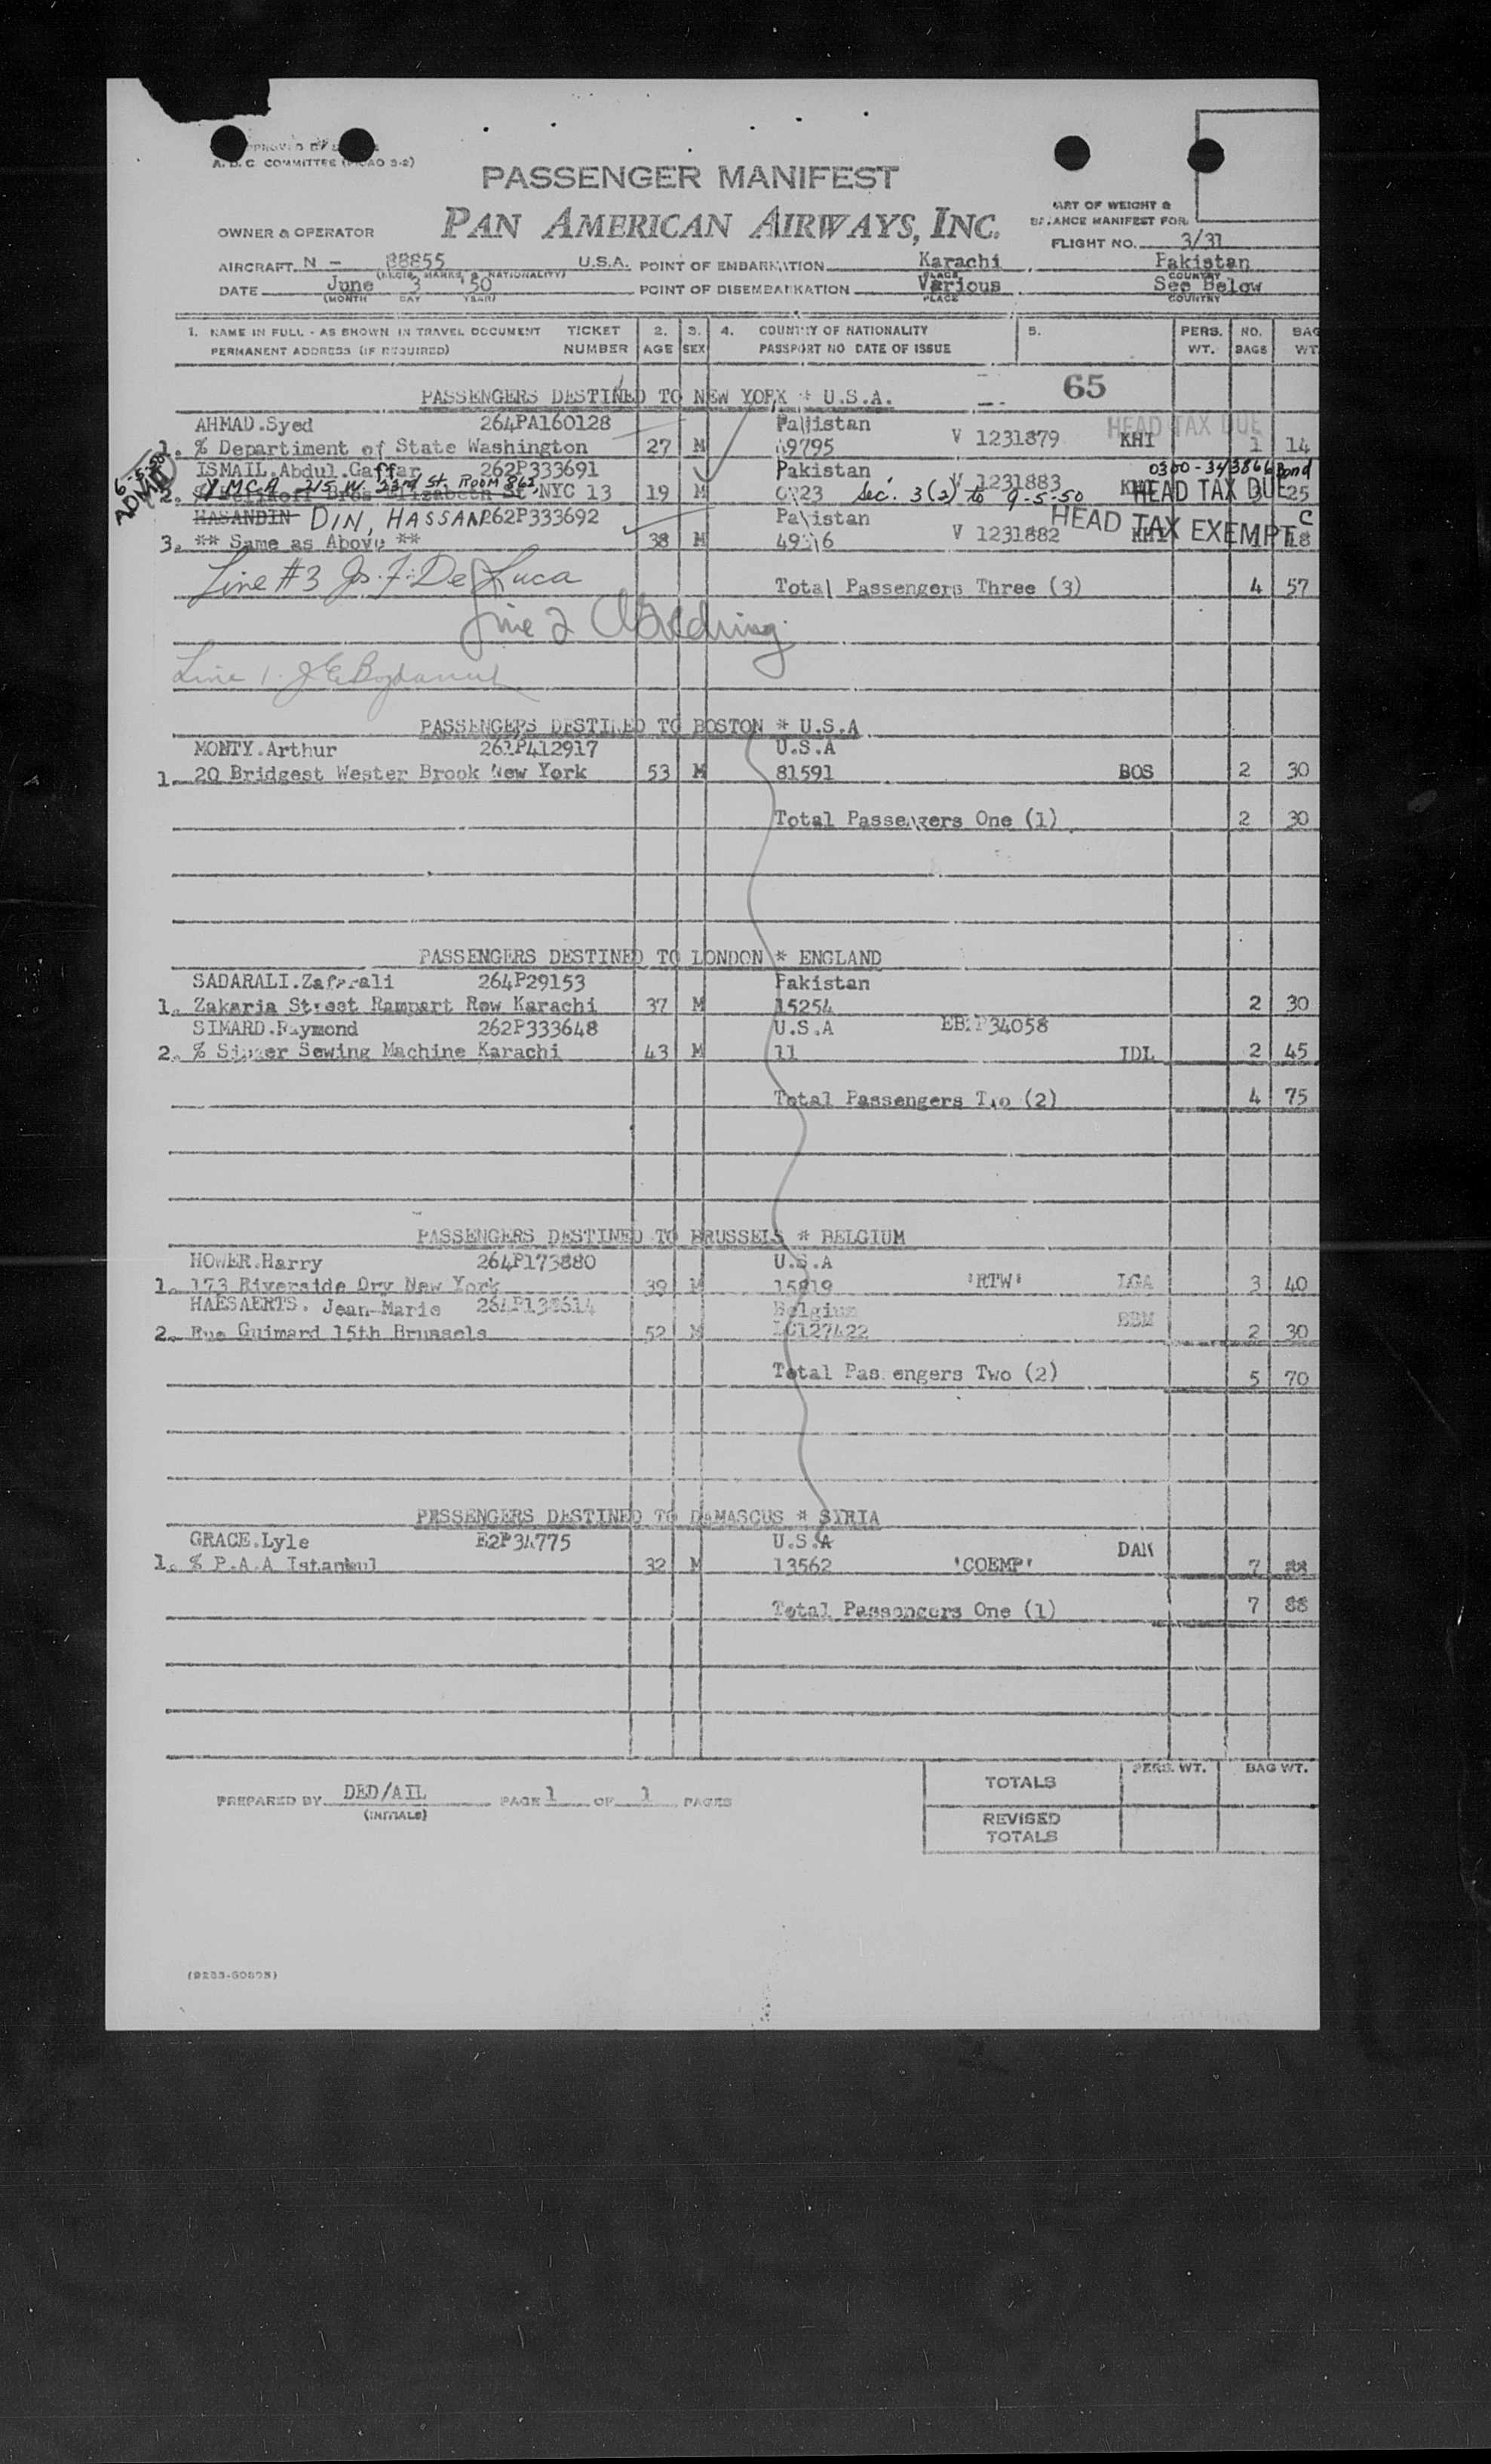 APPROVED BY
A. D. C. COMMITTEE
PASSENGER MANIFEST
PART OF WEIGHT &
BALANCE MANIFEST FOR
OWNER & OPERATOR PAN AMERICAN AIRWAYS, INC.
FLIGHT NO. 3/31
AIRCRAFT N - 88855 U.S.A. POINT OF EMBARKATION Karachi Pakistan
(REGIS. MARKS & NATIONALITY) PLACE COUNTRY
DATE June 3 '50 POINT OF DISEMBARKATION Various See Below
(MONTH DAY YEAR) PLACE COUNTRY
1. NAME IN FULL - AS SHOWN IN TRAVEL DOCUMENT TICKET 2. 3. 4. COUNTRY OF NATIONALITY 5. PERS. NO. BAG
PERMANENT ADDRESS (IF REQUIRED) NUMBER AGE SEX PASSPORT NO DATE OF ISSUE WT. BAGS WT.
65
PASSENGERS DESTINED TO NEW YORK * U.S.A.
AHMAD.Syed 264PA160128 Pakistan V 1231879 HEAD TAX DUE
1. % Departiment of State Washington 27 M 49795 KHI 1 14
ISMAIL.Abdul.Gaffar 262P333691 Pakistan V 1231883 0300-343866 Bond
YMCA - 215 W. 23rd St. Room 862,
2. Bros Elizabeth St NYC 13 19 M Sec. 3(2) to 9-5-50 HEAD TAX DUE 25
HASANDIN DIN, HASSAN 262P333692 Pakistan V 1231882 HEAD TAX EXEMPT C
3. ** Same as Above ** 38 M KHI 1 18
Line #3 Js. F. De Luca Total Passengers Three (3) 4 57
Line 2
Line 1.
PASSENGERS DESTINED TO BOSTON * U.S.A
MONTY.Arthur 262P412917 U.S.A
1. 20 Bridgest Wester Brook New York 53 M 81591 BOS 2 30
Total Passengers One (1) 2 30
PASSENGERS DESTINED TO LONDON * ENGLAND
SADARALI.Zafarali 264P29153 Pakistan
1. Zakaria Street Rampart Row Karachi 37 M 15254 2 30
SIMARD.Raymond 262P333648 U.S.A
2. % Singer Sewing Machine Karachi 43 M 11 IDL 2 45
Total Passengers Two (2) 4 75
PASSENGERS DESTINED TO BRUSSELS * BELGIUM
HOWER.Harry 264P173880 U.S.A
1. 173 Riverside Dry New York 39 M 15819 'RTW' LGA 3 40
HAESAERTS. Jean-Marie 264P138614 Belgium BBM
2. Rue Guimard 15th Brussels 52 M LC127422 2 30
Total Pas engers Two (2) 5 70
PESSENGERS DESTINED TO DAMASCUS * SYRIA
GRACE.Lyle E2P34775 U.S.A DAM
1. % P.A.A Istanbul 32 M 13562 'COEMP' 7 88
Total Passengers One (1) 7 88
PERS. WT. BAG WT.
TOTALS
PREPARED BY DED/AIL PAGE 1 OF 1 PAGES
(INITIALS)
REVISED
TOTALS